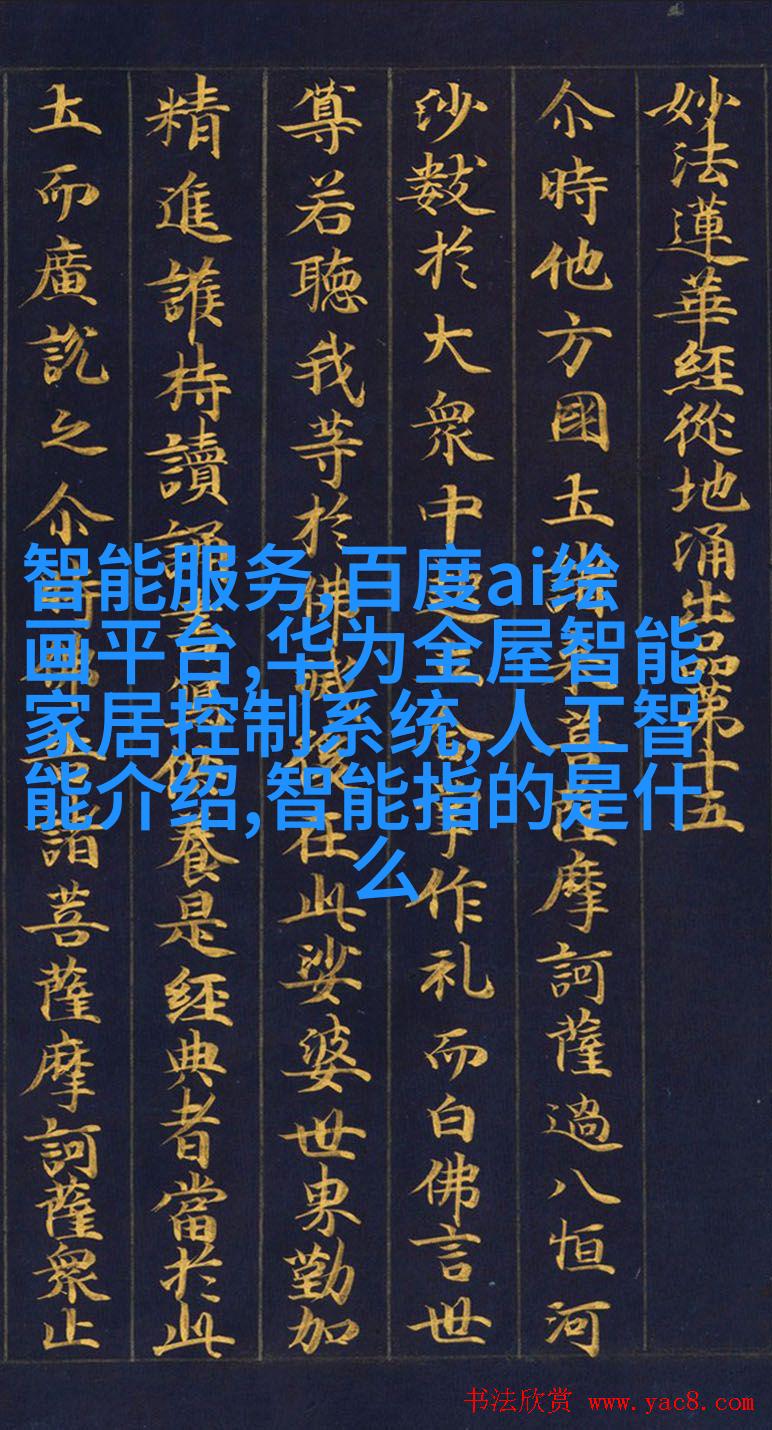 妙法蓮華經從地涌出品第十五
尒時他方國土諸来菩薩摩訶薩過八恒河
沙數於大衆中起立合掌作礼而白佛言世
尊若聽我等於佛滅後在此娑婆世界勤加
精進護持讀誦書寫供養是經典者當於此
土而廣說之尒時佛告諸菩薩摩訶薩衆止
智能服务,百度ai绘
画平台,华为全屋智能
家居控制系统,人工智
能介绍,智能指的是什
么
书法欣赏 www.yac8.com